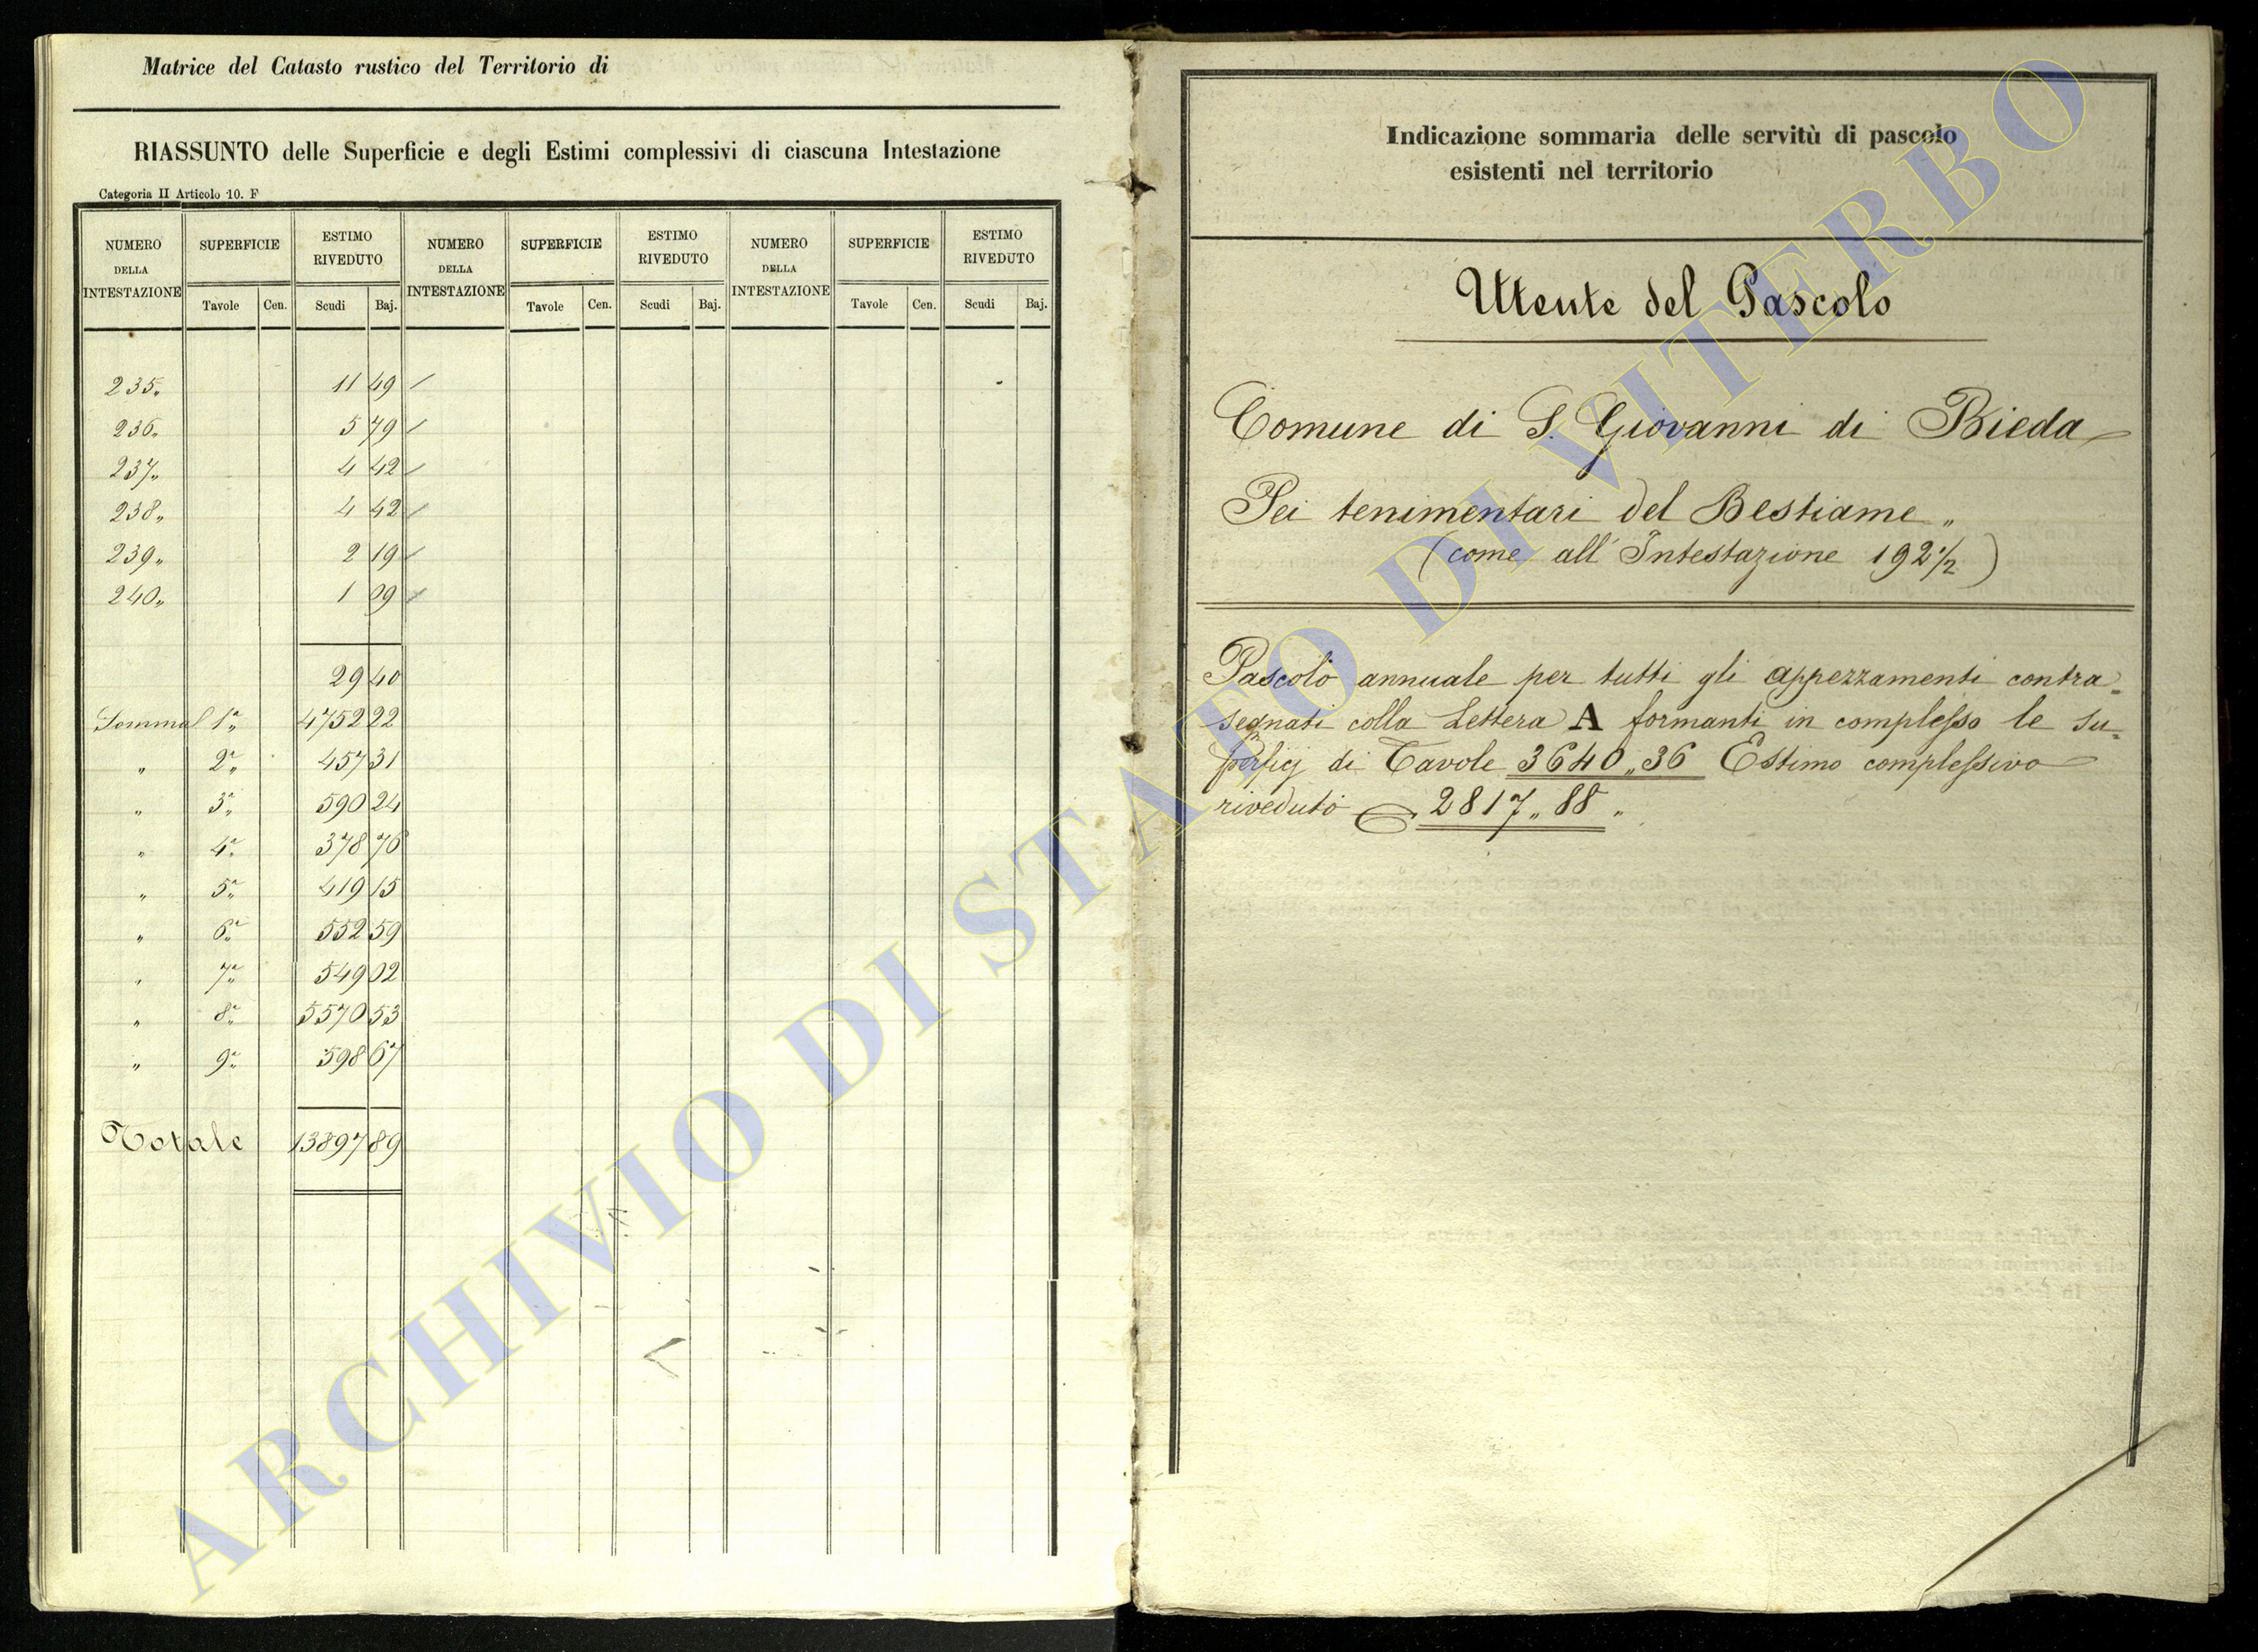 Matrice del Catasto rustico del Territorio di
RIASSUNTO delle Superficie e degli Estimi complessivi di ciascuna Intestazione
Categoria II Articolo 10. F
NUMERO DELLA INTESTAZIONE SUPERFICIE ESTIMO RIVEDUTO NUMERO DELLA INTESTAZIONE SUPERFICIE ESTIMO RIVEDUTO NUMERO DELLA INTESTAZIONE SUPERFICIE ESTIMO RIVEDUTO
Tavole Cen. Scudi Baj. Tavole Cen. Scudi Baj. Tavole Cen. Scudi Baj.
235 „ 11 49
236 „ 5 79
237 „ 4 42
238 „ 4 42
239 „ 2 19
240 „ 1 09
29 40
Somma 1ª 4752 22
„ 2ª 457 31
„ 3ª 590 24
„ 4ª 378 76
„ 5ª 419 15
„ 6ª 552 59
„ 7ª 549 02
„ 8ª 5570 53
„ 9ª 598 67
Totale 13897 89
Indicazione sommaria delle servitù di pascolo
esistenti nel territorio
Utente del Pascolo
Comune di S. Giovanni di Bieda
Pei tenimentari del Bestiame „
(come all' Intestazione 192 1/2)
Pascolo annuale per tutti gli appezzamenti contra=
segnati colla Lettera A formanti in complesso le su=
perficj di Tavole 3640 „ 36 Estimo complessivo
riveduto 2817 „ 88 „
ARCHIVIO DI STATO DI VITERBO